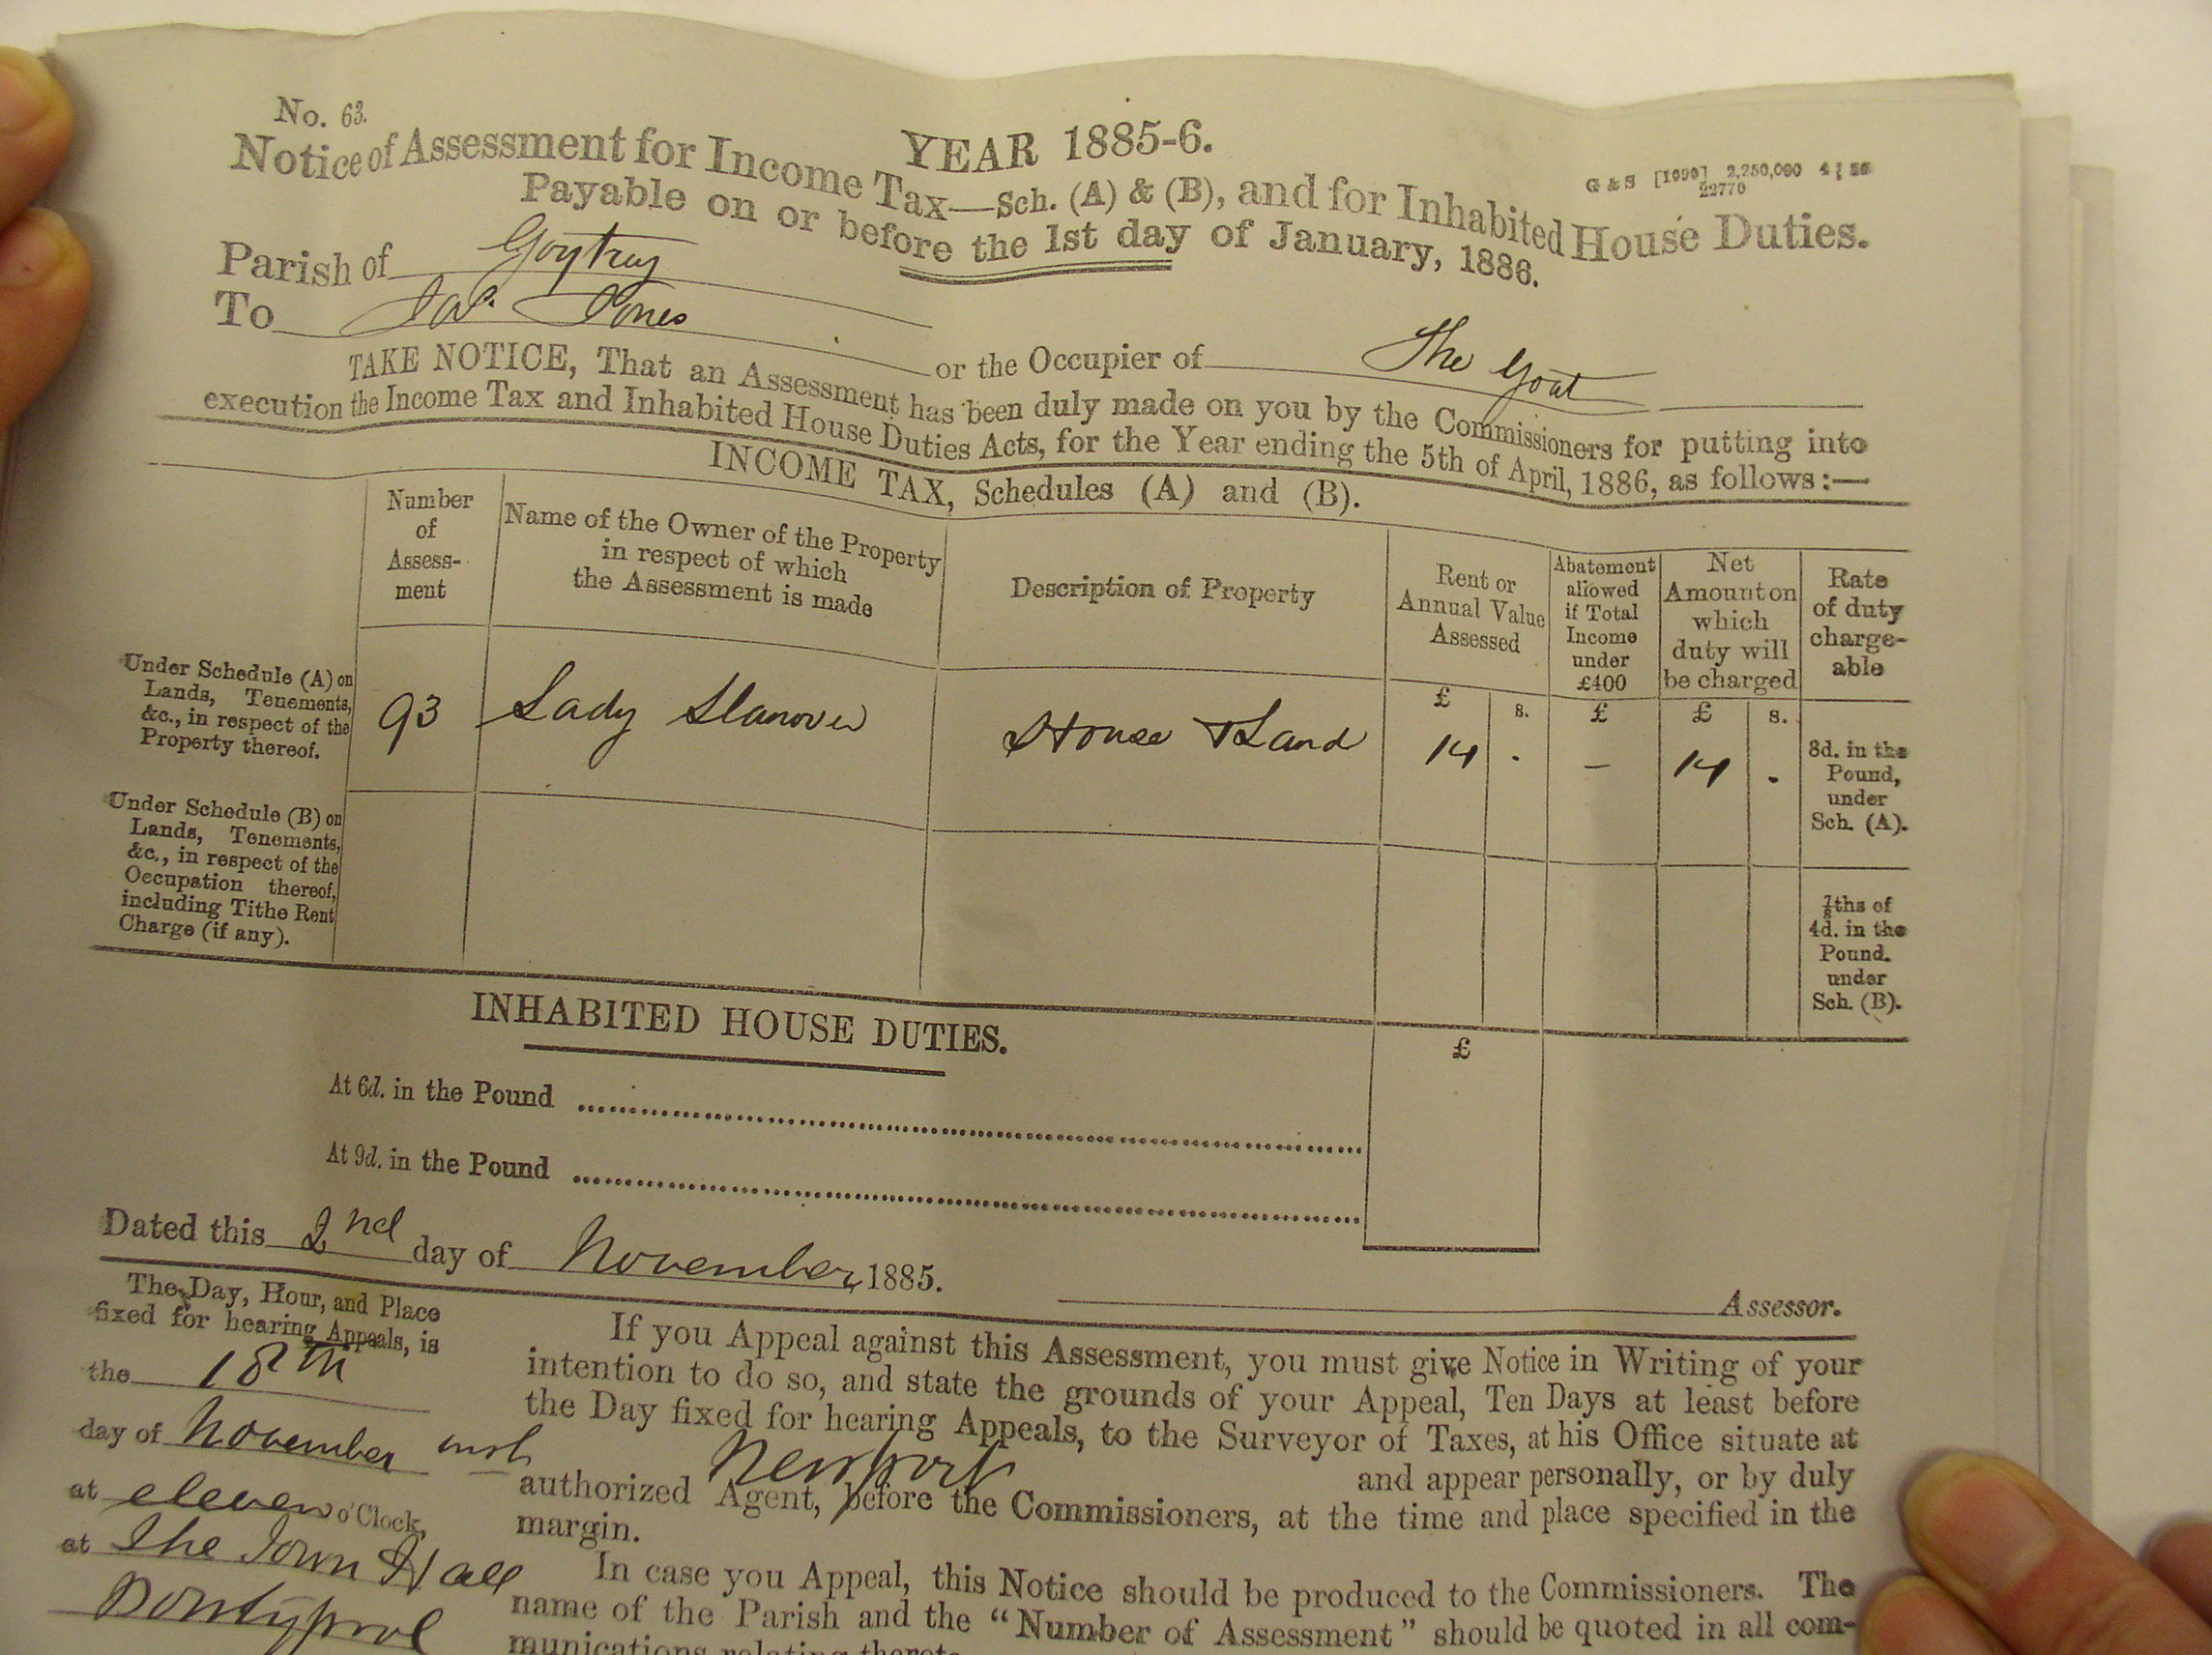 No. 63.
YEAR 1885-6.
G & S [1090] 2,250,000
22770
Notice of Assessment for Income Tax—Sch. (A) & (B), and for Inhabited House Duties.
Payable on or before the 1st day of January, 1886.
Parish of Goytrey
To Jas. Jones or the Occupier of The Goat
TAKE NOTICE, That an Assessment has been duly made on you by the Commissioners for putting into
execution the Income Tax and Inhabited House Duties Acts, for the Year ending the 5th of April, 1886, as follows:—
INCOME TAX, Schedules (A) and (B).
Number
of
Assess-
ment
Name of the Owner of the Property
in respect of which
the Assessment is made
Description of Property
Rent or
Annual Value
Assessed
Abatement
allowed
if Total
Income
under
£400
Net
Amount on
which
duty will
be charged
Rate
of duty
charge-
able
Under Schedule (A) on
Lands, Tenements,
&c., in respect of the
Property thereof.
93
Lady Llanover
House & Land
£ s. £ £ s.
14 . — 14 .
8d. in the
Pound,
under
Sch. (A).
Under Schedule (B) on
Lands, Tenements,
&c., in respect of the
Occupation thereof,
including Tithe Rent
Charge (if any).
⅞ths of
4d. in the
Pound.
under
Sch. (B).
INHABITED HOUSE DUTIES.
£
At 6d. in the Pound
At 9d. in the Pound
Dated this 2nd day of November, 1885.
Assessor.
The Day, Hour, and Place
fixed for hearing Appeals, is
the 18th
day of November inst
at eleven o'Clock,
at The Town Hall
Pontypool
If you Appeal against this Assessment, you must give Notice in Writing of your
intention to do so, and state the grounds of your Appeal, Ten Days at least before
the Day fixed for hearing Appeals, to the Surveyor of Taxes, at his Office situate at
Newport and appear personally, or by duly
authorized Agent, before the Commissioners, at the time and place specified in the
margin.
In case you Appeal, this Notice should be produced to the Commissioners. The
name of the Parish and the "Number of Assessment" should be quoted in all com-
munications relating thereto.